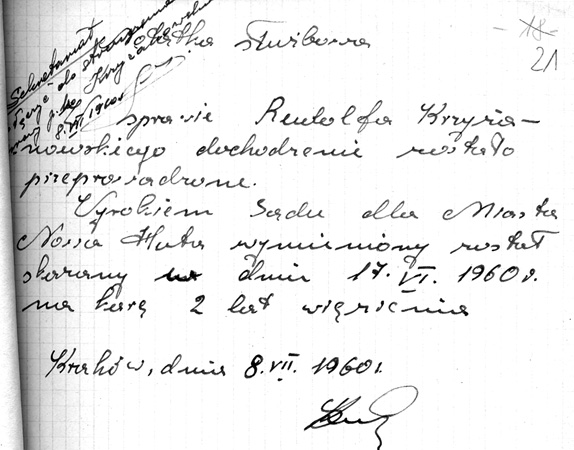 18
21
Sekretariat
8.VII.1960r.
Notatka służbowa
sprawie Rudolfa Krzyża-
nowskiego dochodzenie zostało
przeprowadzone.
Wyrokiem Sądu dla Miasta
Nowa Huta wymieniony został
skazany w dniu 17.VI.1960r.
na karę 2 lat więzienia
Kraków, dnia 8.VII.1960r.